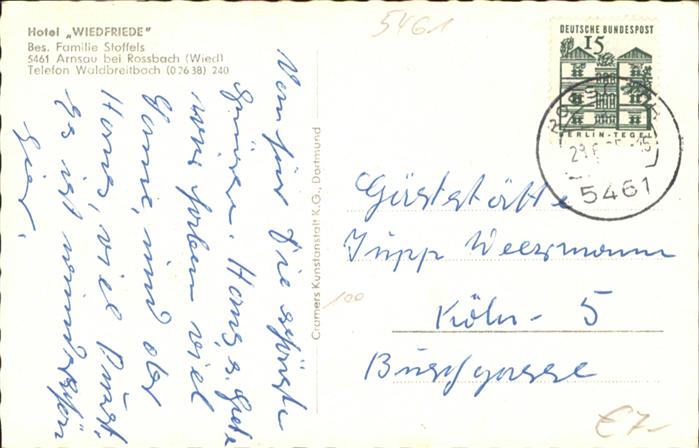 Hotel „WIEDFRIEDE"
Bes. Familie Stoffels
5461 Arnsau bei Rossbach (Wied)
Telefon Waldbreitbach (0 26 38) 240
5461
DEUTSCHE BUNDESPOST
15
BERLIN-TEGEL
5461
Cramers Kunstanstalt K.G., Dortmund
100
Von hier die schönste
Grüsse. Hans u. Grete
wir haben viel
Sonne, und aber
Hans, viel Durst,
Es ist wunderschön
hier.
Gaststätte
Jupp
Köln - 5
Buschgasse
€ 7-